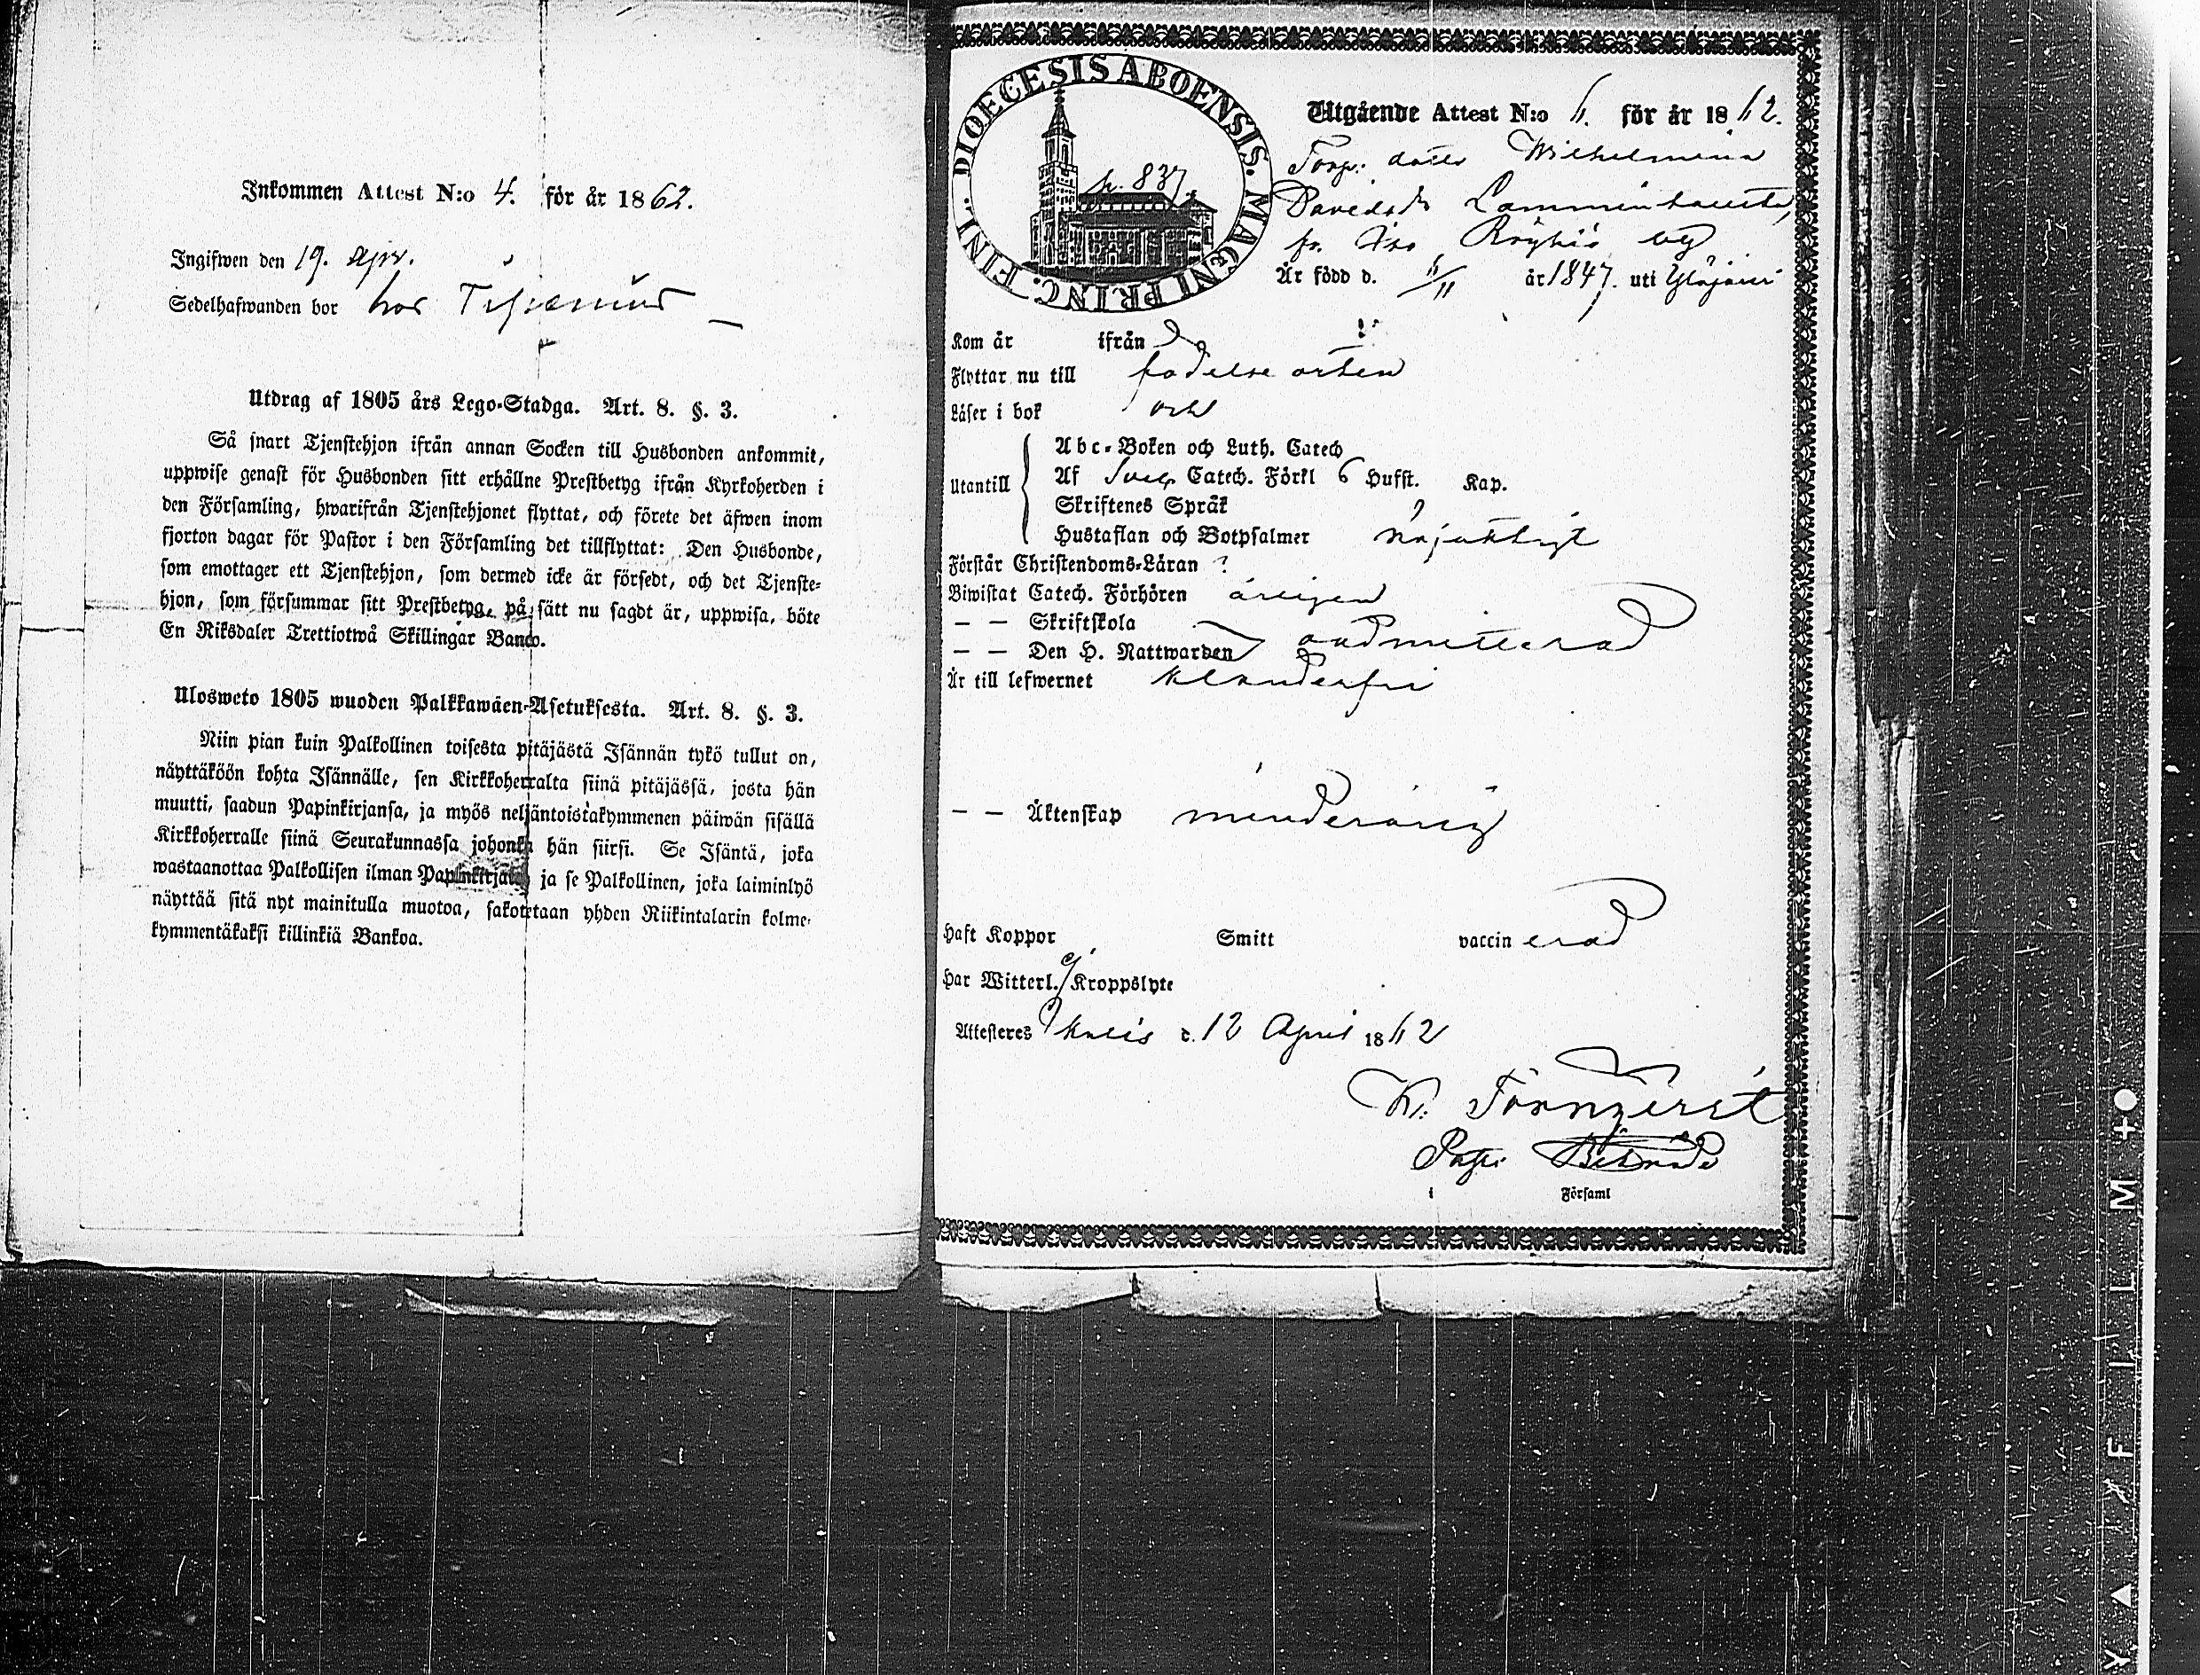 Inkommen Attest N:o 4. för år 1862.
Ingifwen den 19. Apr.
Sedelhafwanden bor hos
Utdrag af 1805 års Lego-Stadga. Art. 8. §. 3.
Så snart Tjenstehjon ifrån annan Socken till Husbonden ankommit,
uppwise genast för Husbonden sitt erhållne Prestbetyg ifrån Kyrkoherden i
den Församling, hwarifrån Tjenstehjonet flyttat, och förete det äfwen inom
fjorton dagar för Pastor i den Församling det tillflyttat: Den Husbonde,
som emottager ett Tjenstehjon, som dermed icke är försedt, och det Tjenste-
hjon, som försummar sitt Prestbetyg, på sätt nu sagdt är, uppwisa, böte
En Riksdaler Trettiotwå Skillingar Banco.
Ulosweto 1805 wuoden Palkkawäen-Asetuksesta. Art. 8. §. 3.
Niin pian kuin Palkollinen toisesta pitäjästä Isännän tykö tullut on,
näyttäköön kohta Isännälle, sen Kirkkoherralta siinä pitäjässä, josta hän
muutti, saadun Papinkirjansa, ja myös neljäntoistakymmenen päiwän sisällä
Kirkkoherralle siinä Seurakunnassa johonka hän siirsi. Se Isäntä, joka
wastaanottaa Palkollisen ilman Papinkirjata, ja se Palkollinen, joka laiminlyö
näyttää sitä nyt mainitulla muotoa, sakotetaan yhden Riikintalarin kolme-
kymmentäkaksi killinkiä Bankoa.
DIOECESIS ABOENSIS. MAGNI PRINC. FINL.
p. 837.
Utgående Attest N:o 6. för år 1862.
Torp. dotter Wilhelmina
Davidsdr Lamminhausta,
fr. Iso Röyhiö by
Är född d. 6/11 år 1847. uti Ylöjärvi
Kom år ifrån
Flyttar nu till födelse orten
Läser i bok
Utantill
Abc-Boken och Luth. Catech
Af Sveb. Catech. Förkl 6 Hufst. Kap.
Skriftenes Språk
Hustaflan och Botpsalmer nöjaktligt
Förstår Christendoms-Läran
Biwistat Catech. Förhören årligen
— — Skriftskola
— — Den H. Nattwarden oadmitterad
Är till lefwernet klanderfri
— — Äktenskap minderårig
Haft Koppor Smitt vaccinerad
Har Witterl. ej Kroppslyte
Attesteres Ikalis d. 12 April 1862
K. Törnqvist
Past:
i Församl
Y ▲ X F I L M